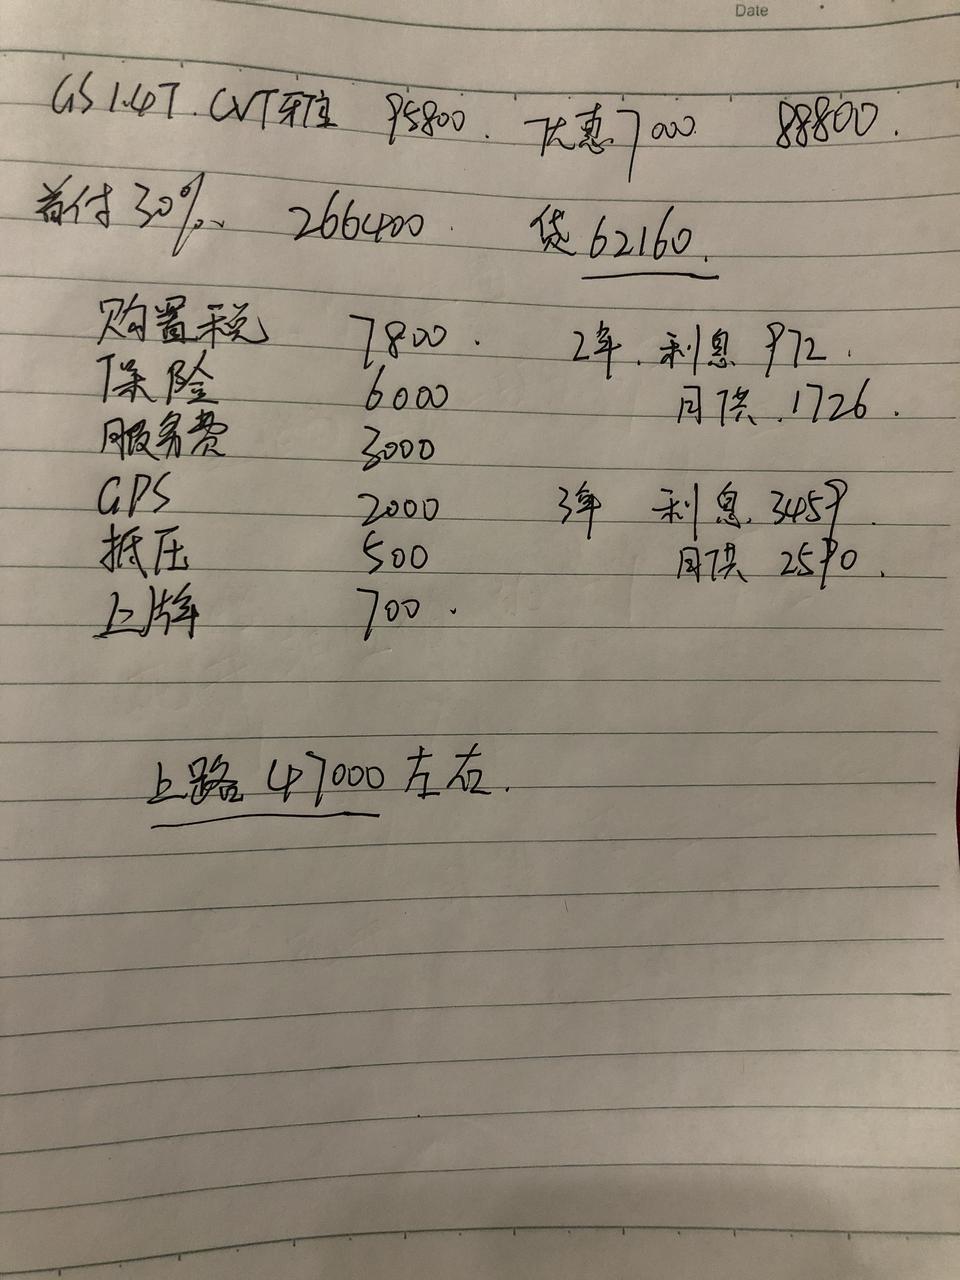 Date
GS 1.4T. CVT 雅 95800. 优惠7000 88800.
首付30%、 266400. 贷62160.
购置税 7800. 2年. 利息 972.
保险 6000 月供.1726.
服务费 3000
GPS 2000 3年 利息. 3459.
抵压 500 月供 2590.
上牌 700.
上路 47000左右.